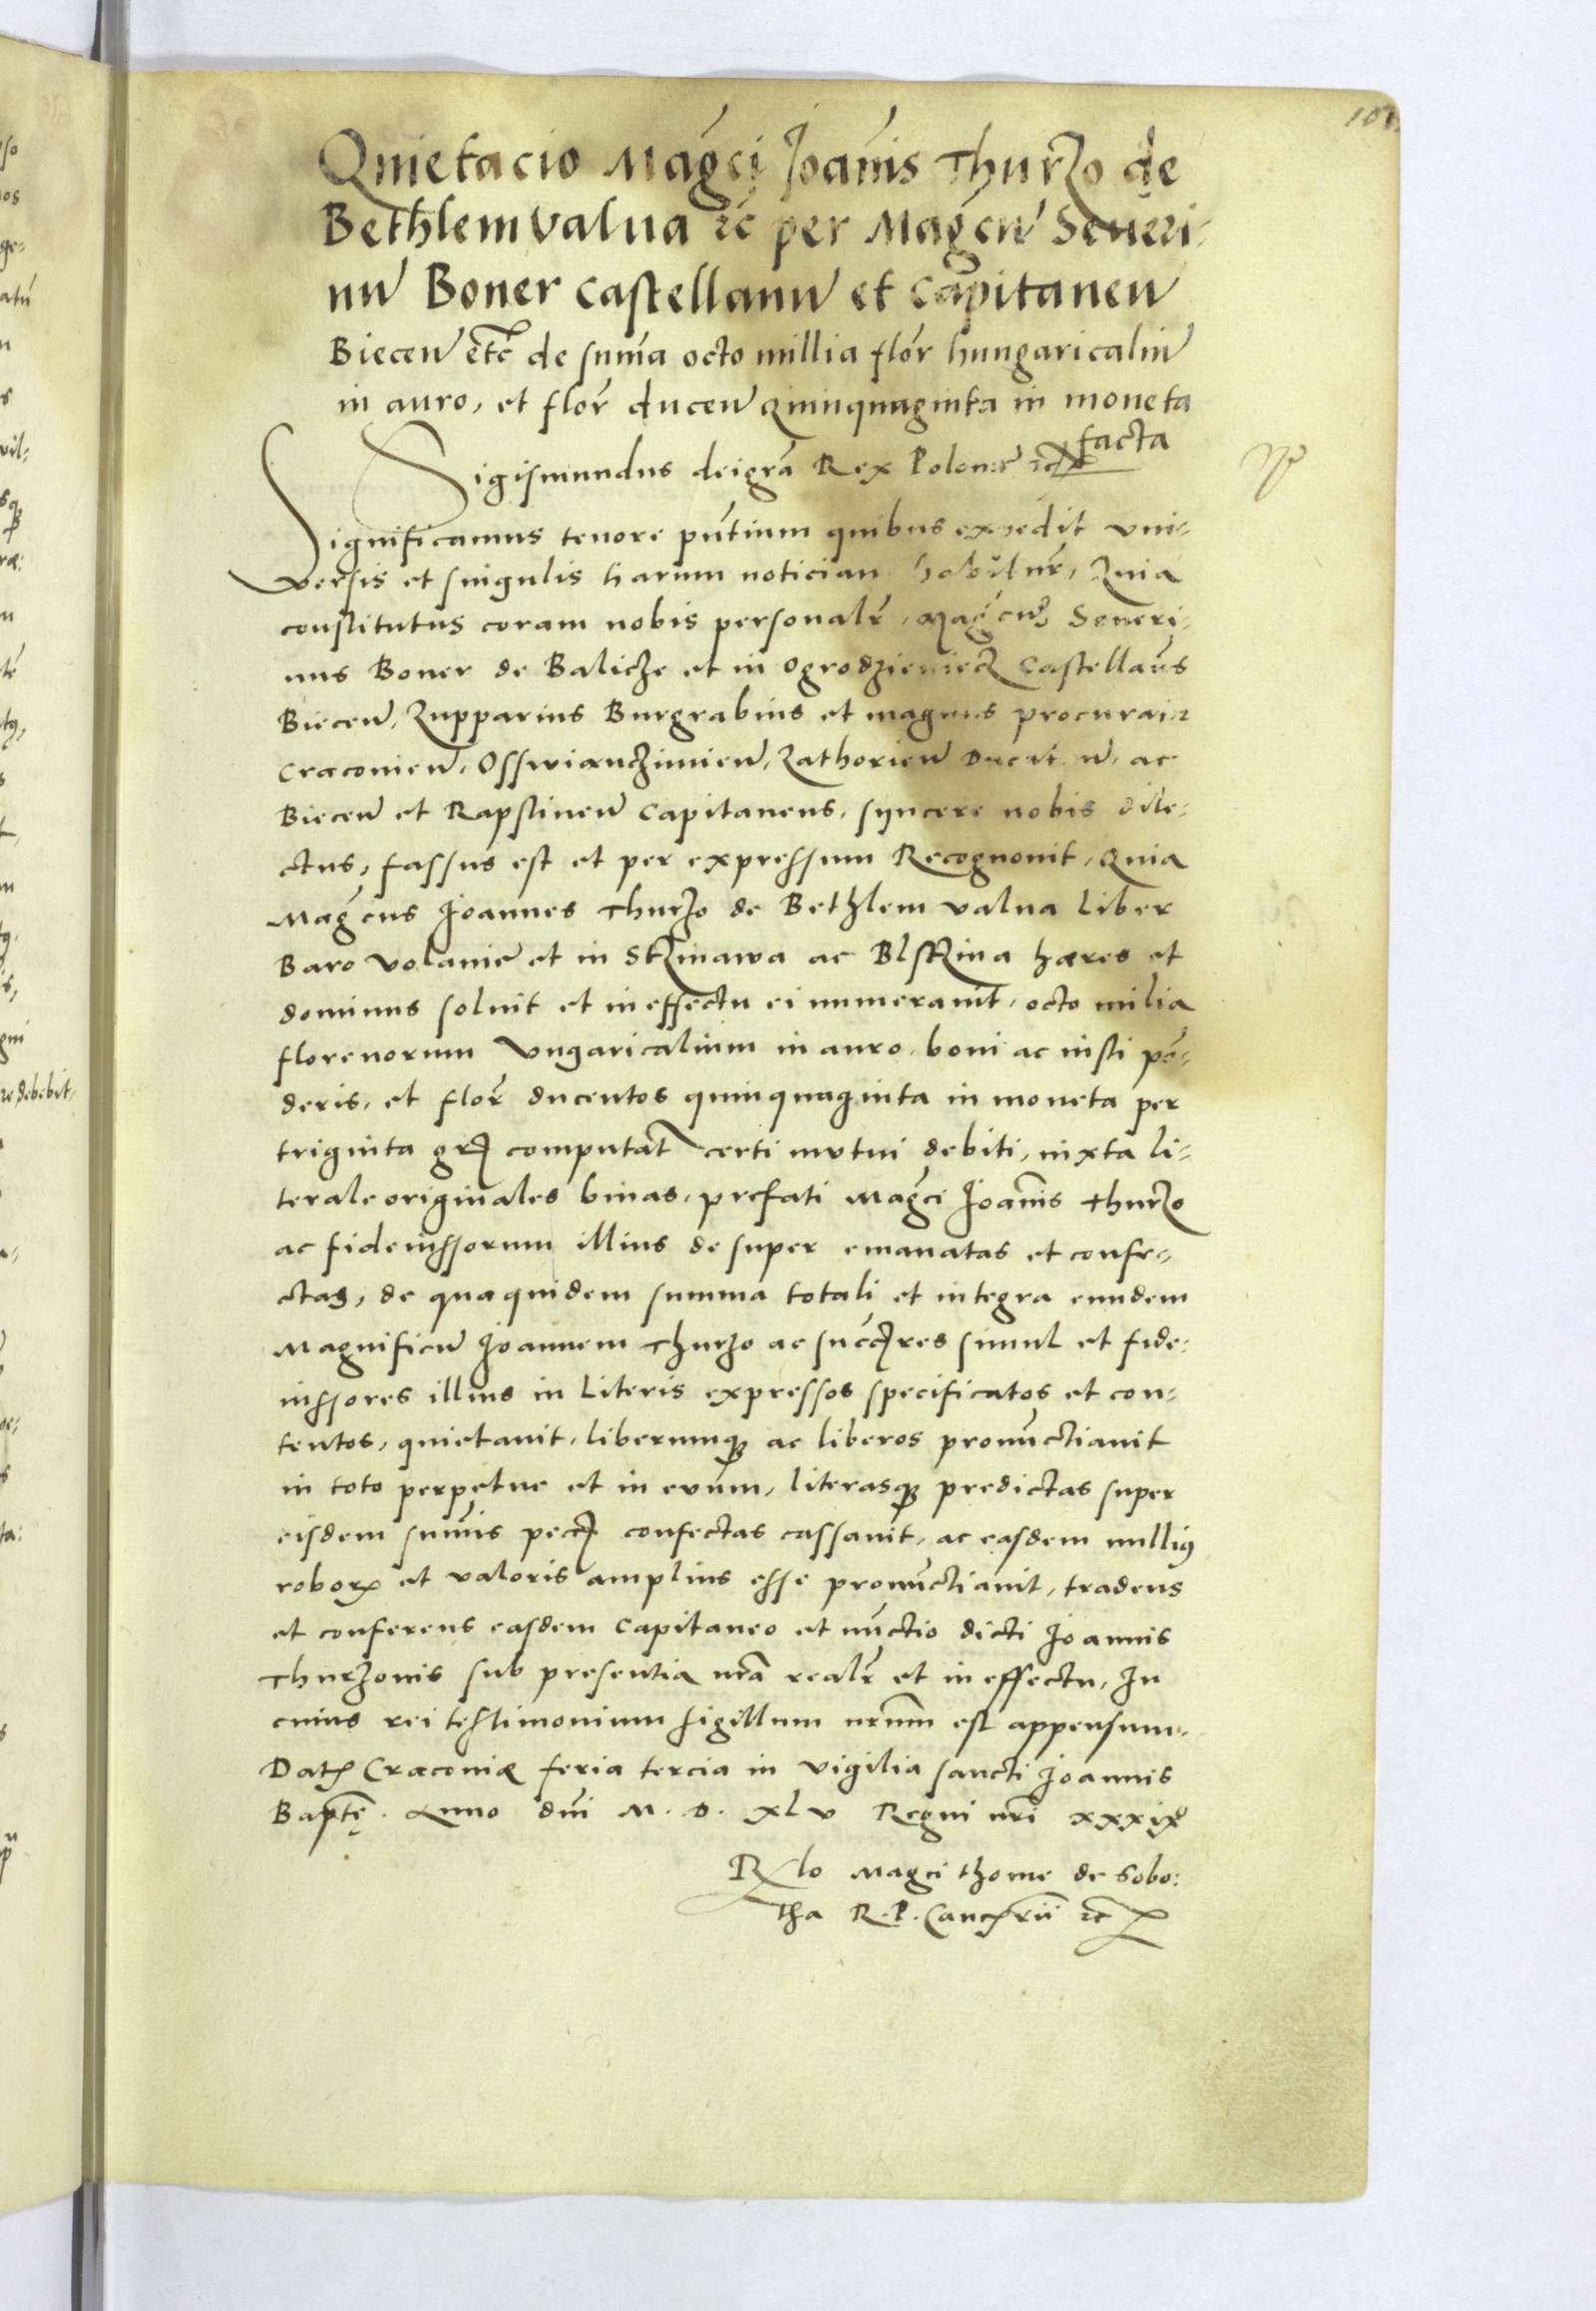 Quietacio Magci Joannis Thurzo de
Bethlemvalua &c per Magcu Seueri-
nu Boner castellanu et Capitaneu
Biecen etc de suma octo millia flor hungaricaliu
in auro, et flor ducen Quinquaginta in moneta
facta
Sigismundus dei gra Rex Polonie &c
Significamus tenore pntium quibus expedit vni-
versis et singulis harum noticiam habitur, Quia
constitutus coram nobis personalr, Magcus Seueri-
nus Boner de Balicze et in Ogrodzieniecz Castellanus
Biecen, Zupparius Burgrabius et magnus procurator
Cracovien, Osswianczimien, Zathorien Ducatuu, ac
Biecen et Rapstinen Capitaneus, syncere nobis dile-
ctus, fassus est et per expressum Recognouit, Quia
Magcus Joannes Thurzo de Bethlem valua Liber
Baro Volavie et in Stzinawa ac Blstzina hæres et
dominus soluit et in effectu ei numerauit, octo milia
florenorum Vngaricalium in auro, boni ac iusti pō-
deris, et flor ducentos quinquaginta in moneta per
triginta gros computat certi mutui debiti, iuxta li-
terale originales binas, prefati Magci Joannis Thurzo
ac fideiussorum illius de super emanatas et confe-
ctas, de qua quidem summa totali et integra eundem
Magnificu Joannem Thurzo ac succres simul et fide-
iussores illius in Literis expressos specificatos et con-
tentos, quietauit, liberumq ac liberos pronunctiauit
in toto perpetue et in evum, literasq predictas super
eisdem sumis pecc confectas cassauit, ac easdem nulliq
robor et valoris amplius esse pronunctiauit, tradens
et conferens easdem Capitaneo et nunctio dicti Joannis
Thurzonis sub presentia nra realr et in effectu, In
cuius rei testimonium sigillum nrum est appensum.
Dat Cracoviæ feria tercia in vigilia sancti Joannis
Baptę. Anno dni M. D. xlv Regni nri xxxix
Rlo Magci thome de Sobo:
tha R. P. Cancrii &c